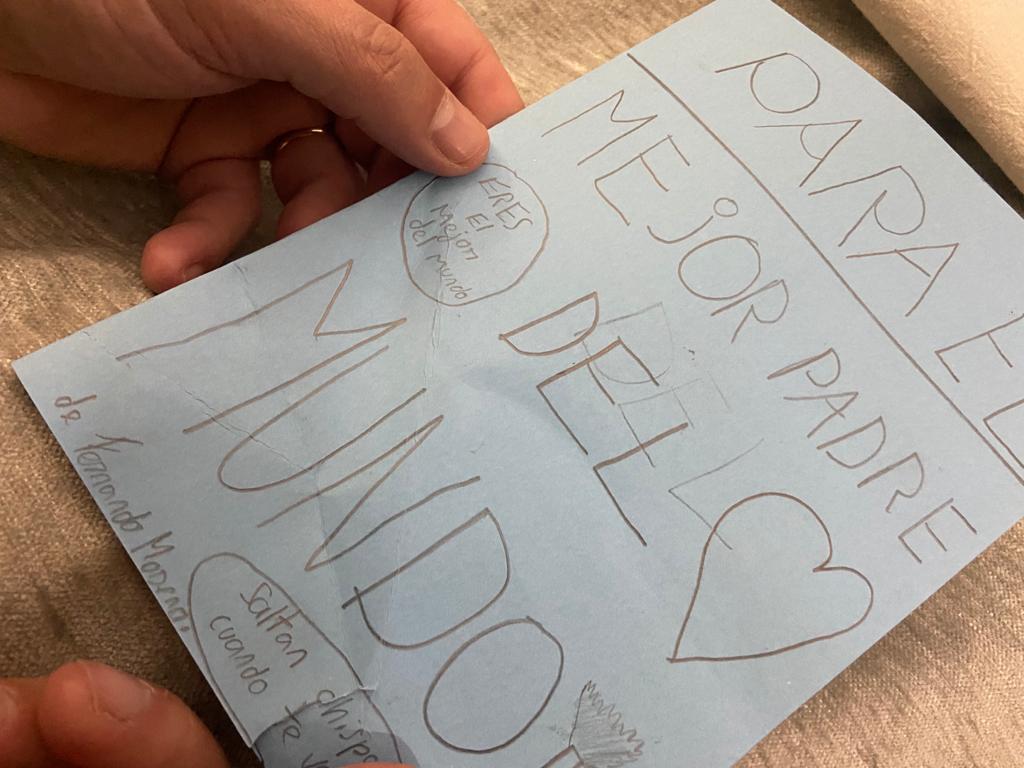 PARA EL
MEJOR PADRE
DEL
MUNDO
ERES
El
Mejor
del mundo
de Fernando Moreno.
Saltan chispa
cuando te v